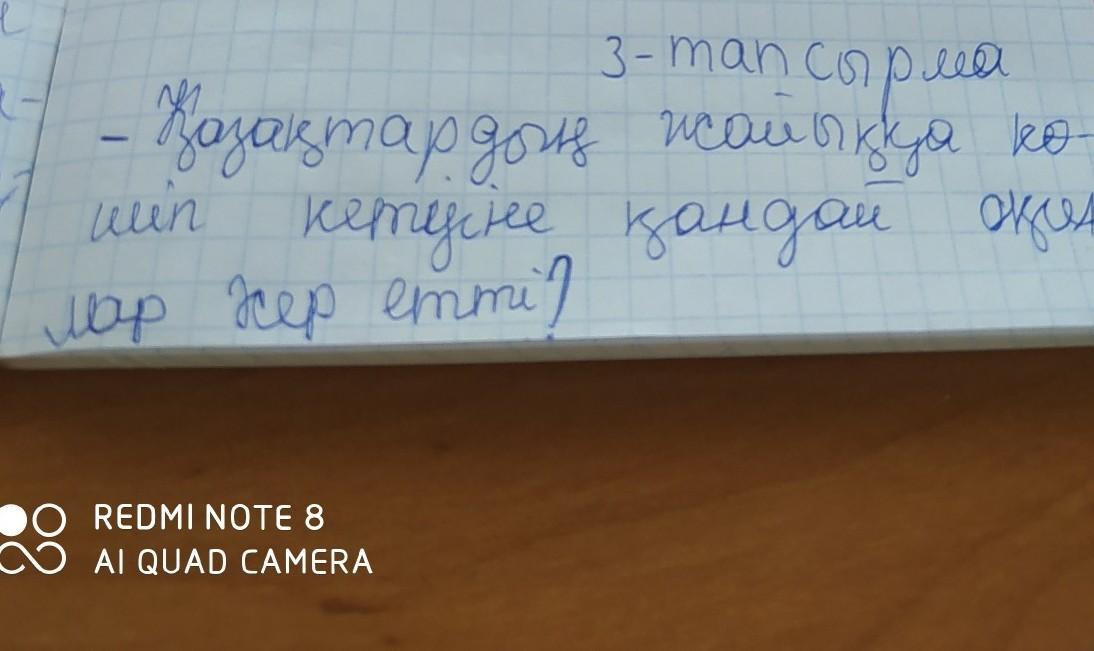 3-тапсырма
- Қазақтардың жайыққа кө-
шіп кетуіне қандай оқиға
лар әсер етті?
REDMI NOTE 8
AI QUAD CAMERA